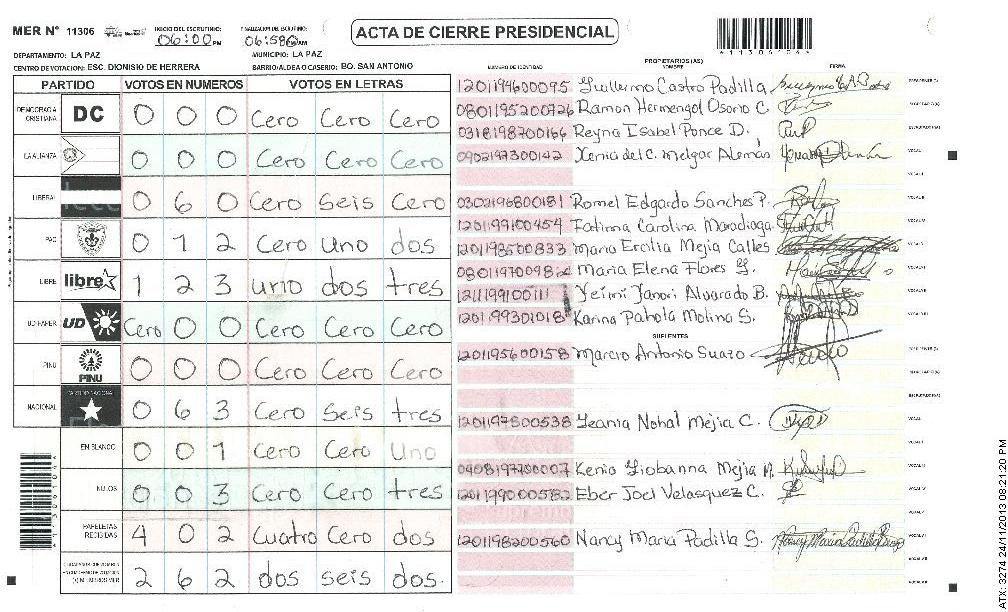 MER Nº 11306
INICIO DEL ESCRUTINIO: 06:00 PM
FINALIZACION DEL ESCRUTINIO: 06:58 PM
ACTA DE CIERRE PRESIDENCIAL
DEPARTAMENTO: LA PAZ
MUNICIPIO: LA PAZ
CENTRO DE VOTACION: ESC. DIONISIO DE HERRERA
BARRIO/ALDEA O CASERIO: BO. SAN ANTONIO
PARTIDO VOTOS EN NUMEROS VOTOS EN LETRAS
DEMOCRACIA CRISTIANA DC 0 0 0 Cero Cero Cero
LA ALIANZA 0 0 0 Cero Cero Cero
LIBERAL 0 6 0 Cero Seis Cero
PAC 0 1 2 Cero Uno dos
LIBRE libre 1 2 3 uno dos tres
UD-FAPER UD Cero 0 0 Cero Cero Cero
PINU PINU 0 0 0 Cero Cero Cero
NACIONAL 0 6 3 Cero Seis tres
EN BLANCO 0 0 1 Cero Cero Uno
NULOS 0 0 3 Cero Cero tres
PAPELETAS RECIBIDAS 4 0 2 Cuatro Cero dos
(+) MIEMBROS MER 2 6 2 dos seis dos.
PROPIETARIOS (AS)
NUMERO DE IDENTIDAD NOMBRE FIRMA
1201194600095 Guillermo Castro Padilla
0801195200726 Ramon Hermengol Osorio C.
0318198700166 Reyna Isabel Ponce D.
0902197300142 Xenia del C. Melgar Alemás
0302196800181 Romel Edgardo Sanches P.
1201199100454 Fatima Carolina Maradiaga
1201193500833 Maria Ercilia Mejia Calles
Maria Elena Flores G.
1211199100111 Yeimi Yanori Alvarado B.
1201199301018 Karina Pahola Molina S.
SUPLENTES
1201195600158 Marcio Antonio Suazo
1201197800538 Yeania Nohal Mejia C.
Kenia Giobanna Mejia M.
1201199000582 Eber Joel Velasquez C.
1201198200560 Nancy Maria Padilla S.
ATX: 3274 24/11/2013 08:21:20 PM